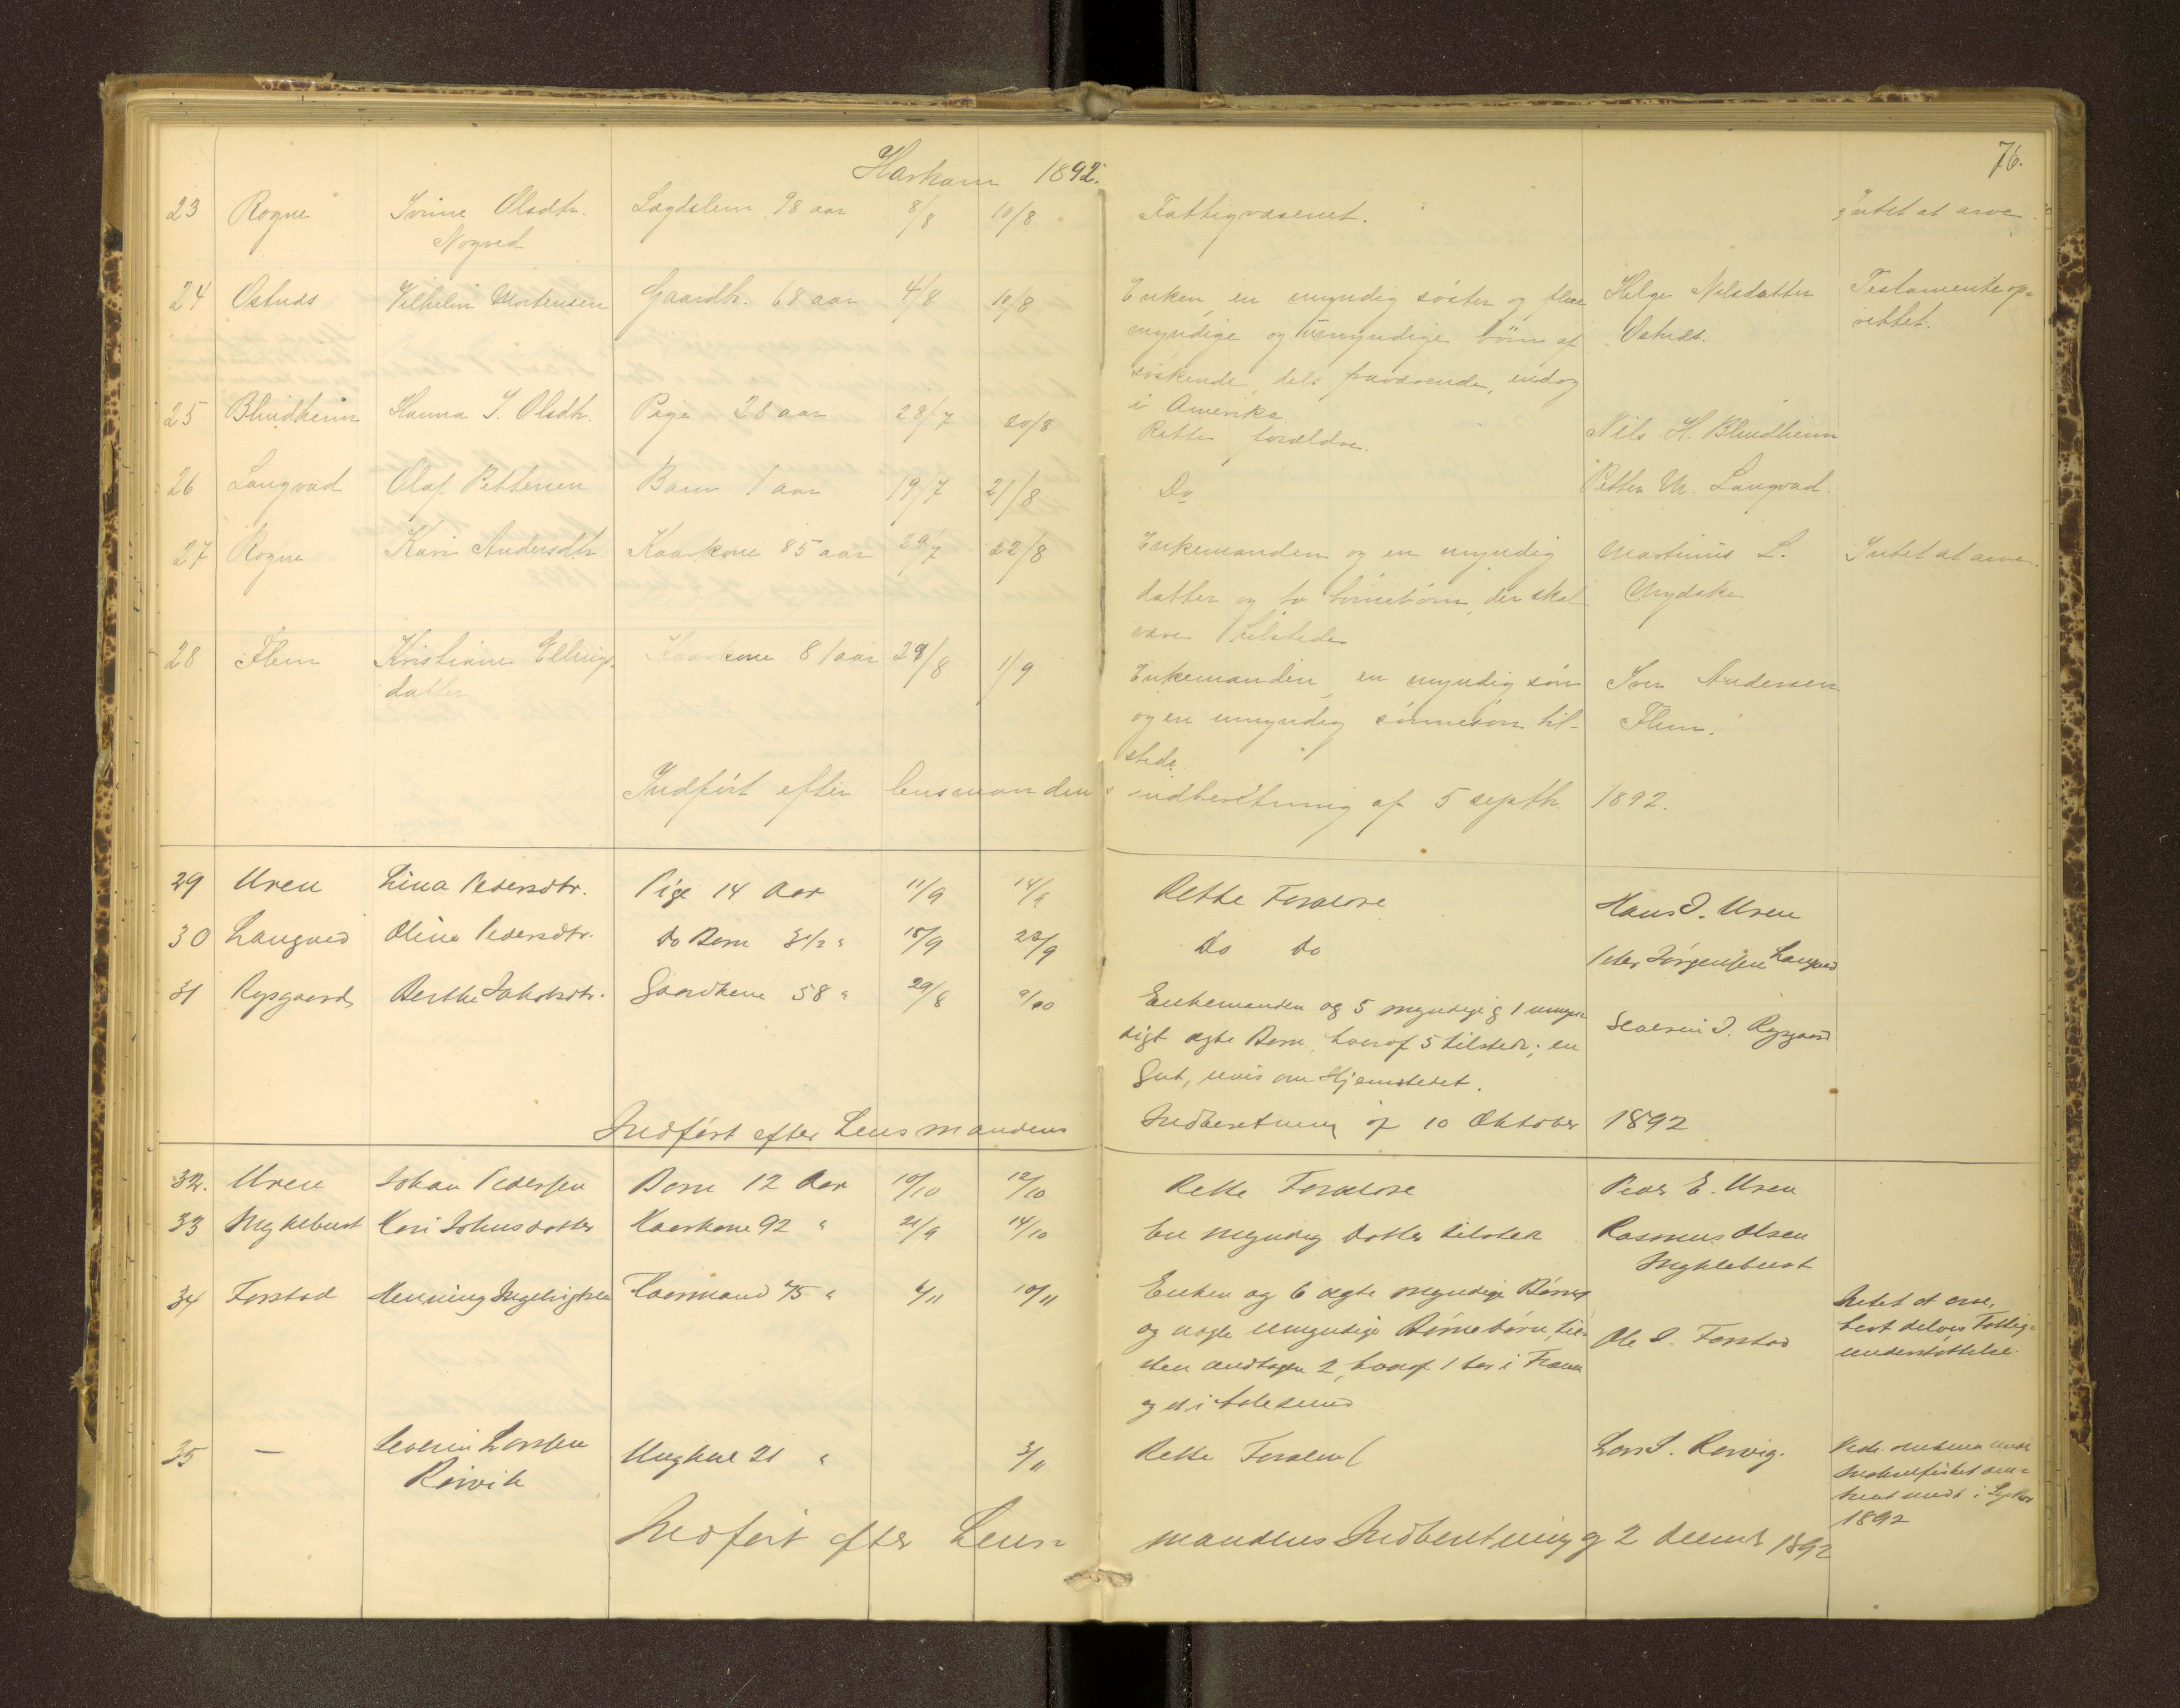 76.
Harham 1892.
23 Rogne Ivrine Olsdtr. Lægdslem 98 aar 8/8 10/8 Fattigvæsenet. Intet at arve
Nogved
24 Ostnes Vilhelm Mortensen Gaardb. 68 aar 4/8 10/8 Enken, en myndig søster og flere Helge Nilsdatter Testamente op=
myndige og umyndige børn af Ostnes. rettet.
søskende, dels fraværende, endog
i Amerika
25 Blindheim Hanna I. Olsdtr. Pige 28 aar 28/7 20/8 Rette forældre. Nils H. Blindheim
26 Langvad Olaf Pettersen Barn 1 aar 19/7 21/8 Do Petter M. Langvad.
27 Rogne Kari Andersdtr Kaarkone 85 aar 29/7 22/8 Enkemanden og en myndig Martinus L. Intet at arve.
datter og to børnebørn, der skal
være tilstede
28 Flem Kristiane Ellings- Kaarkone 81 aar 29/8 1/9 Enkemanden, en myndig søn Iver Andersen
datter og en umyndig sønnesøn til- Flem.
stede.
Indført efter lensmandens indberetning af 5 septbr 1892.
29 Uren Lina Pedersdtr. Pige 14 Aar 11/9 14/9 Rette Forældre Hans I. Uren
30 Langved Oline Pedersdtr. Do Barn 3 1/2 " 18/9 23/9 Do Do Peter Jørgensen Langved
31 Rysgaard Berthe Jakobsdtr. Gaardkone 58 " 29/8 9/10 Enkemanden og 5 myndige & 1 umyn-
digt ægte Børn, hvoraf 5 tilstede; en Severin I. Rysgaard
Gut, uvis om Hjemstedet.
Indført efter Lensmandens Indberetning af 10 Oktober 1892
32. Uren Johan Pedersen Barn 12 Aar 10/10 12/10 Rette Forældre Peder E. Uren
33 Myklebust Kari Johnsdatter Kaarkone 92 " 21/9 14/10 En myndig Datter tilstede Rasmus Olsen
Myklebust
34 Forstad Henning Ingebrigtsen Kaarmand 75 " 6/11 10/11 Enken og 6 ægte myndige Børn Intet at arve,
og nogle umyndige Børnebørn, til- Ole I. Forstad havt delvis Fattig=
stede undtagen 2, hvoraf 1 bor i understøttelse.
og et i Aalesund
35 — Severin Larsen Ungkarl 21 " 3/11 Rette Forældre Lars S. Rørvig.
Rørvik 1892
Indført efter Lens= mandens Indberetning af 2 Decembr 1892